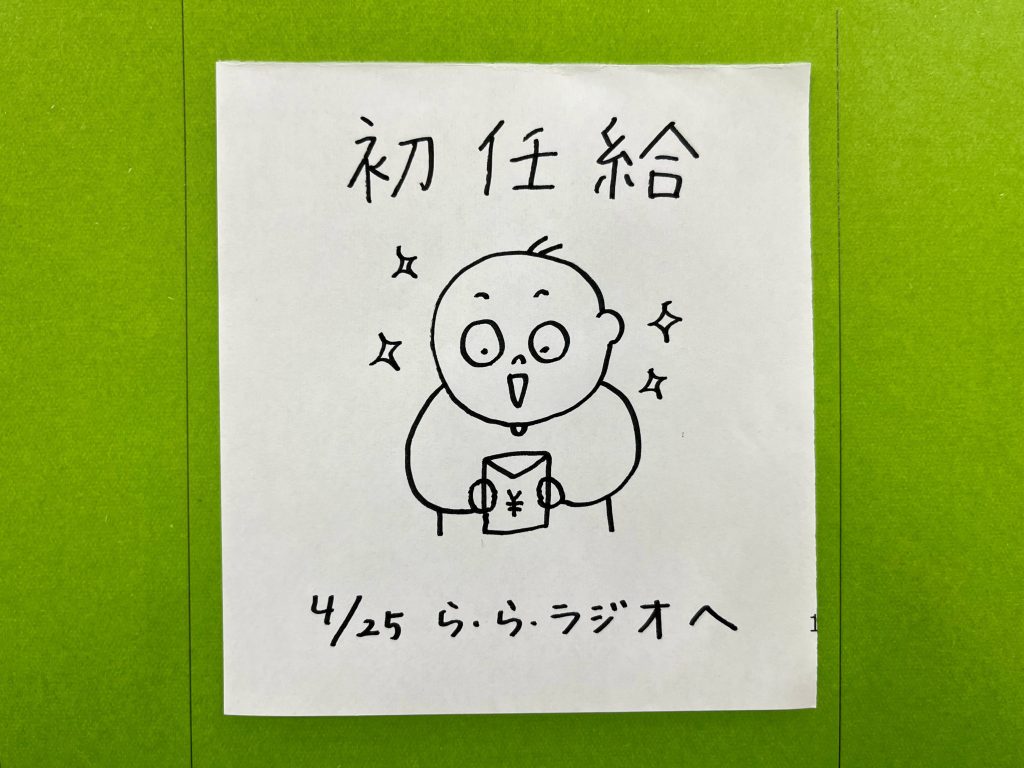 初任給
¥
4/25 ら・ら・ラジオへ
1